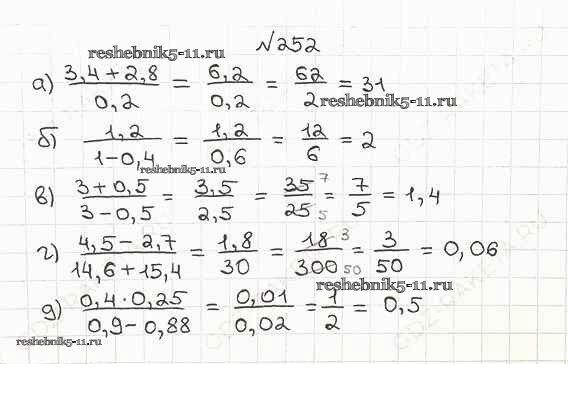 №252
reshebnik5-11.ru
а) 3,4 + 2,8 / 0,2 = 6,2 / 0,2 = 62 / 2 = 31
reshebnik5-11.ru
б) 1,2 / 1-0,4 = 1,2 / 0,6 = 12 / 6 = 2
reshebnik5-11.ru
в) 3 + 0,5 / 3 - 0,5 = 3,5 / 2,5 = 35 7 / 25 5 = 7 / 5 = 1,4
г) 4,5 - 2,7 / 14,6 + 15,4 = 1,8 / 30 = 18 3 / 300 50 = 3 / 50 = 0,06
reshebnik5-11.ru
д) 0,4 · 0,25 / 0,9 - 0,88 = 0,01 / 0,02 = 1 / 2 = 0,5
reshebnik5-11.ru